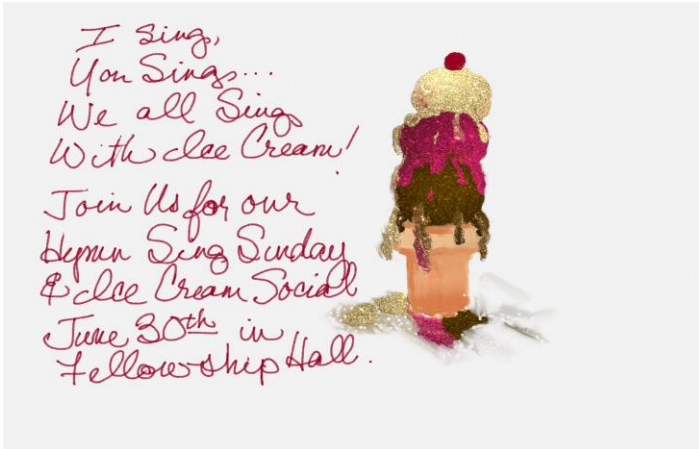 I Sing,
You Sings...
We all Sing
With Ice Cream!
Join Us for our
Hymn Sing Sunday
& Ice Cream Social
June 30th in
Fellowship Hall.